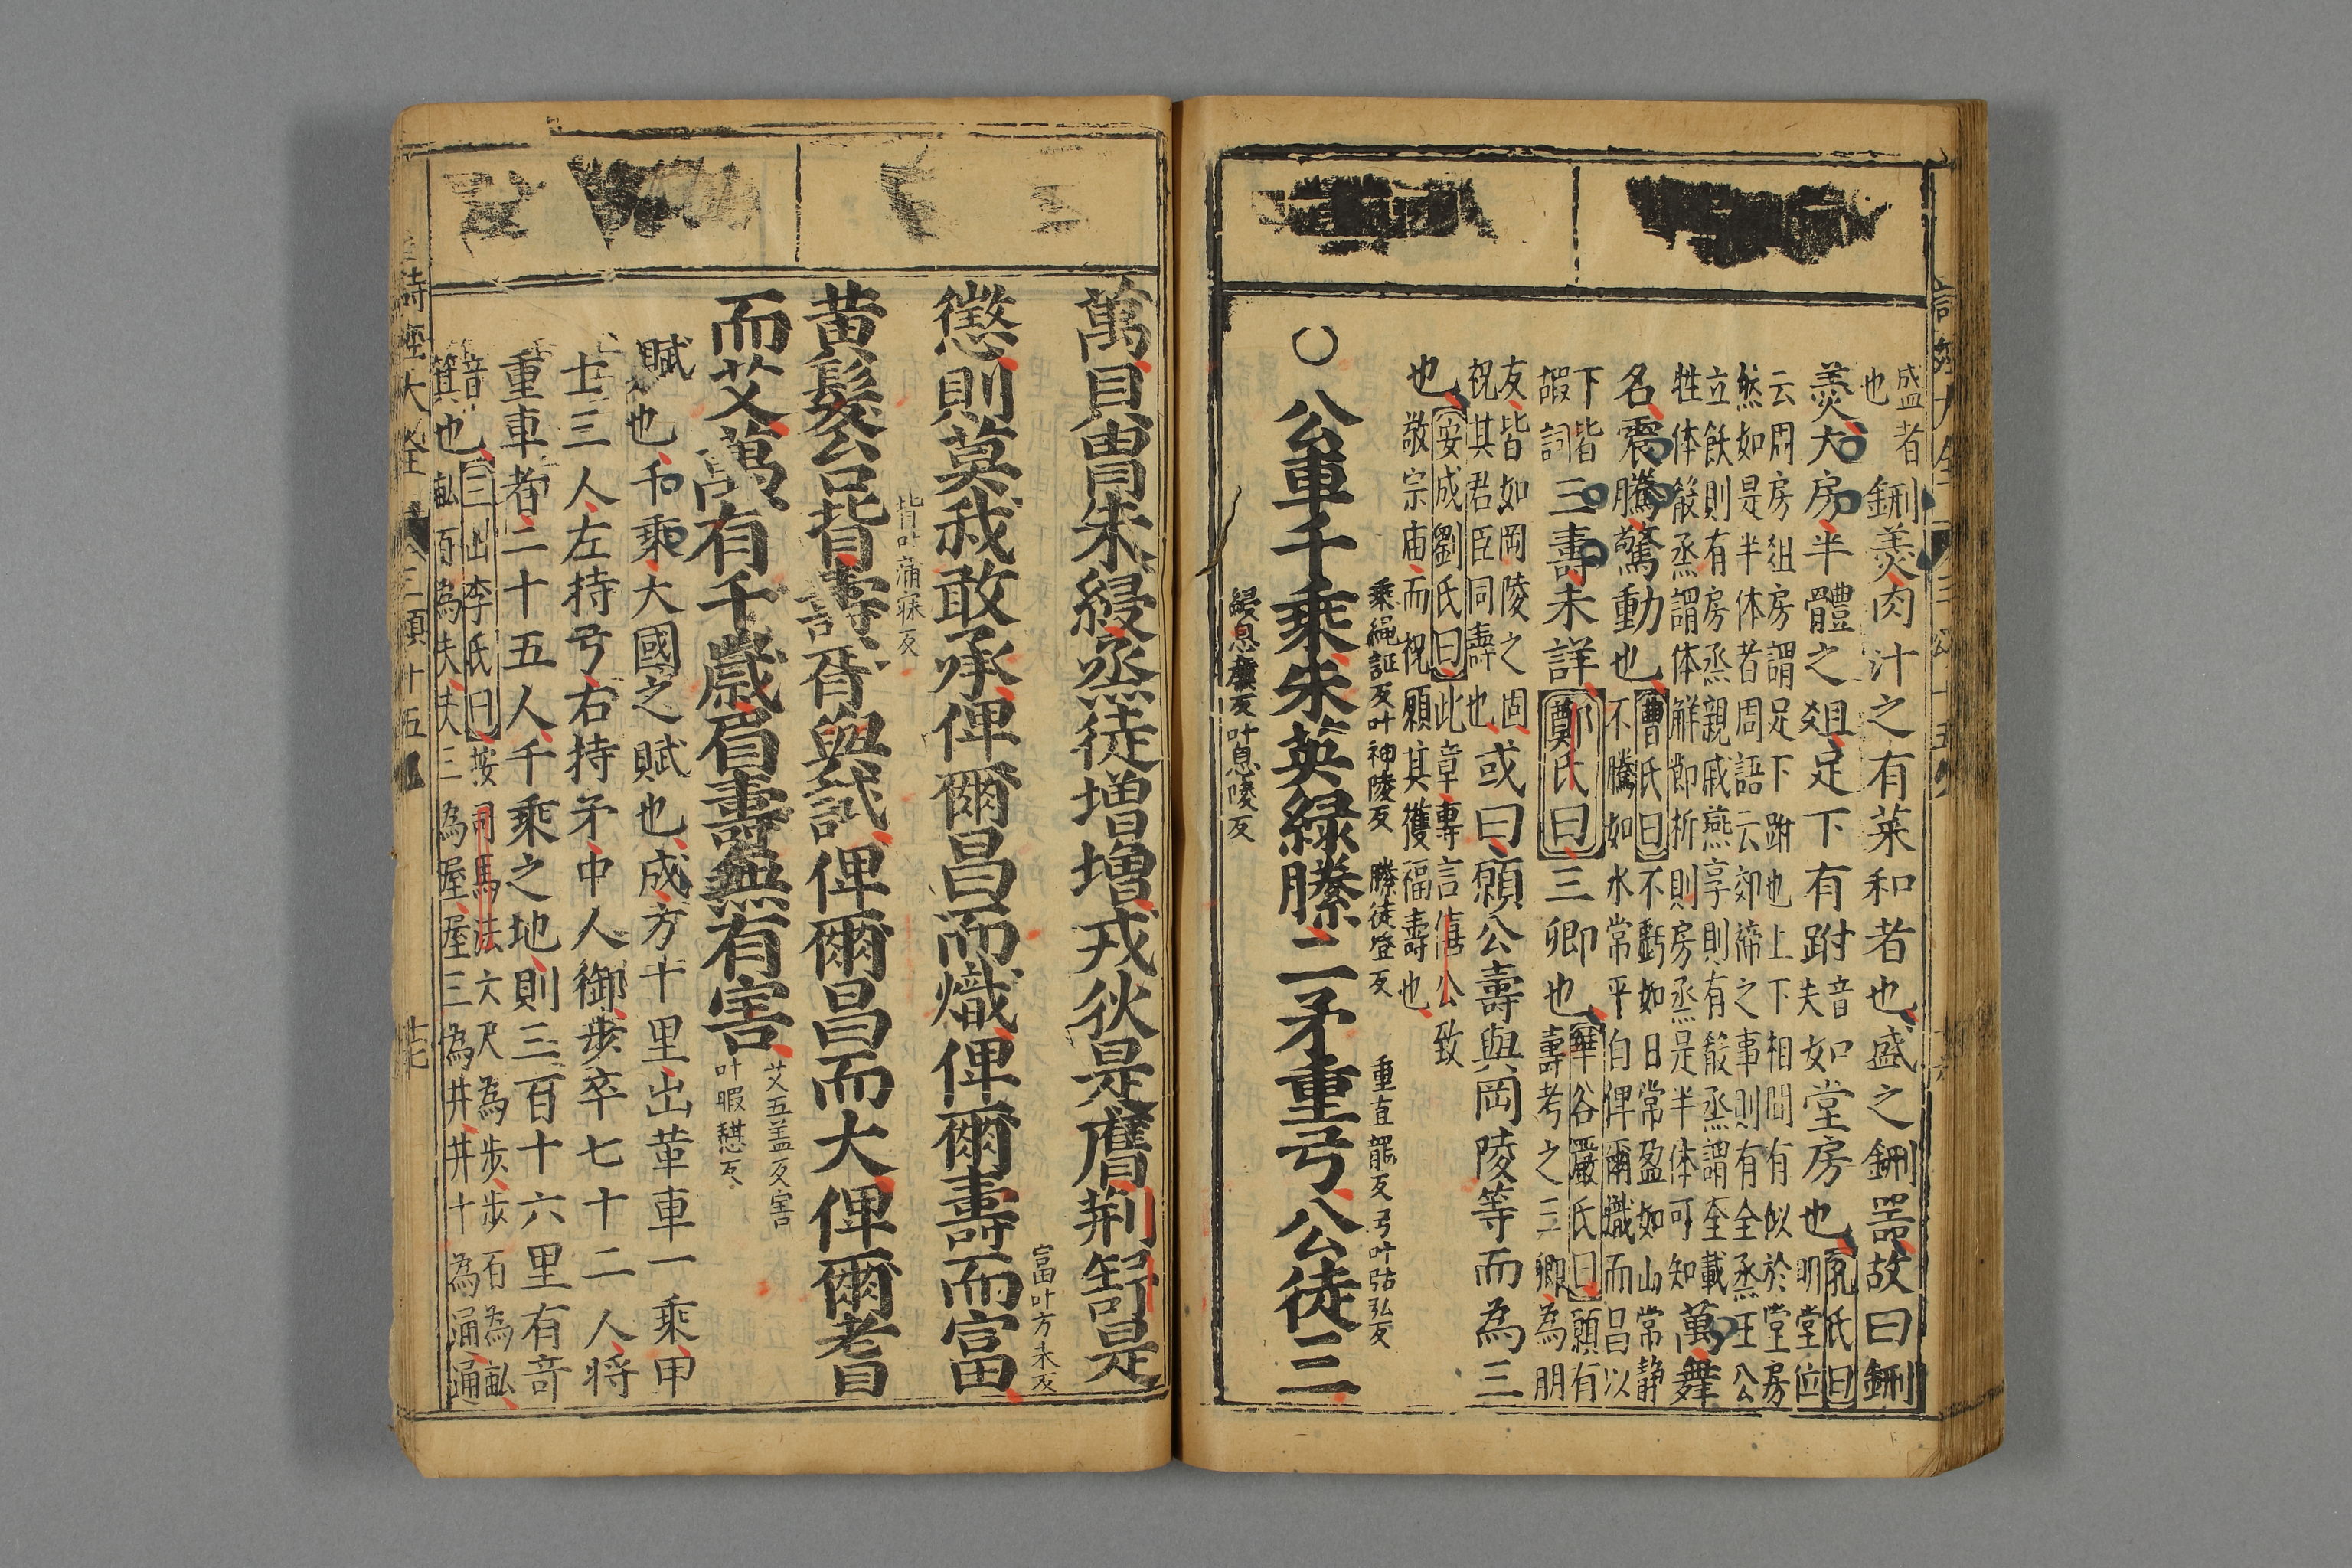 盛者
也
鉶羮肉汁之有菜和者也盛之鉶噐故曰鉶
羮大房半體之俎足下有跗
音
夫
如堂房也
孔氏曰
明堂位
云周房俎房謂足下跗也上下相間有似於堂房
然如是半体者周語云郊禘之事則有全烝王公
立飫則有房烝親戚燕享則有殽烝謂全載
牲体殽烝謂体解節折則房烝是半体可知
萬舞
名震騰驚動也
曹氏曰不虧如日常盈如山常静
不騰如水常平自俾爾熾而昌以
下皆
嘏詞
三壽未詳鄭氏曰三卿也
華谷嚴氏曰願有
壽考之三卿為朋
友皆如岡陵之固
祝其君臣同壽也
或曰願公壽與岡陵等而為三
也
安成劉氏曰此章專言僖公致
敬宗庙而祝願其獲福壽也
○公車千乘朱英緑縢二矛重弓公徒三
乘繩証反叶神陵反
縢徒登反
重直龍反弓叶姑弘反
綅息廉反叶息陵反
萬貝胄朱綅烝徒增增戎狄是膺荆舒是
懲則莫我敢承俾爾昌而熾俾爾壽而富
富叶方未反
黄髮台背壽胥與試俾爾昌而大俾爾耆
背叶蒲寐反
而艾萬有千歲眉壽無有害
艾五盖反害
叶暇憇反
賦也千乘大國之賦也成方十里出革車一乘甲
士三人左持弓右持矛中人御步卒七十二人将
重車者二十五人千乘之地則三百十六里有竒
音
箕
也
三山李氏曰按司馬法六尺為步步百為畝
畝百為夫夫三為屋屋三為井井十為通通
詩經大全
三頌十五